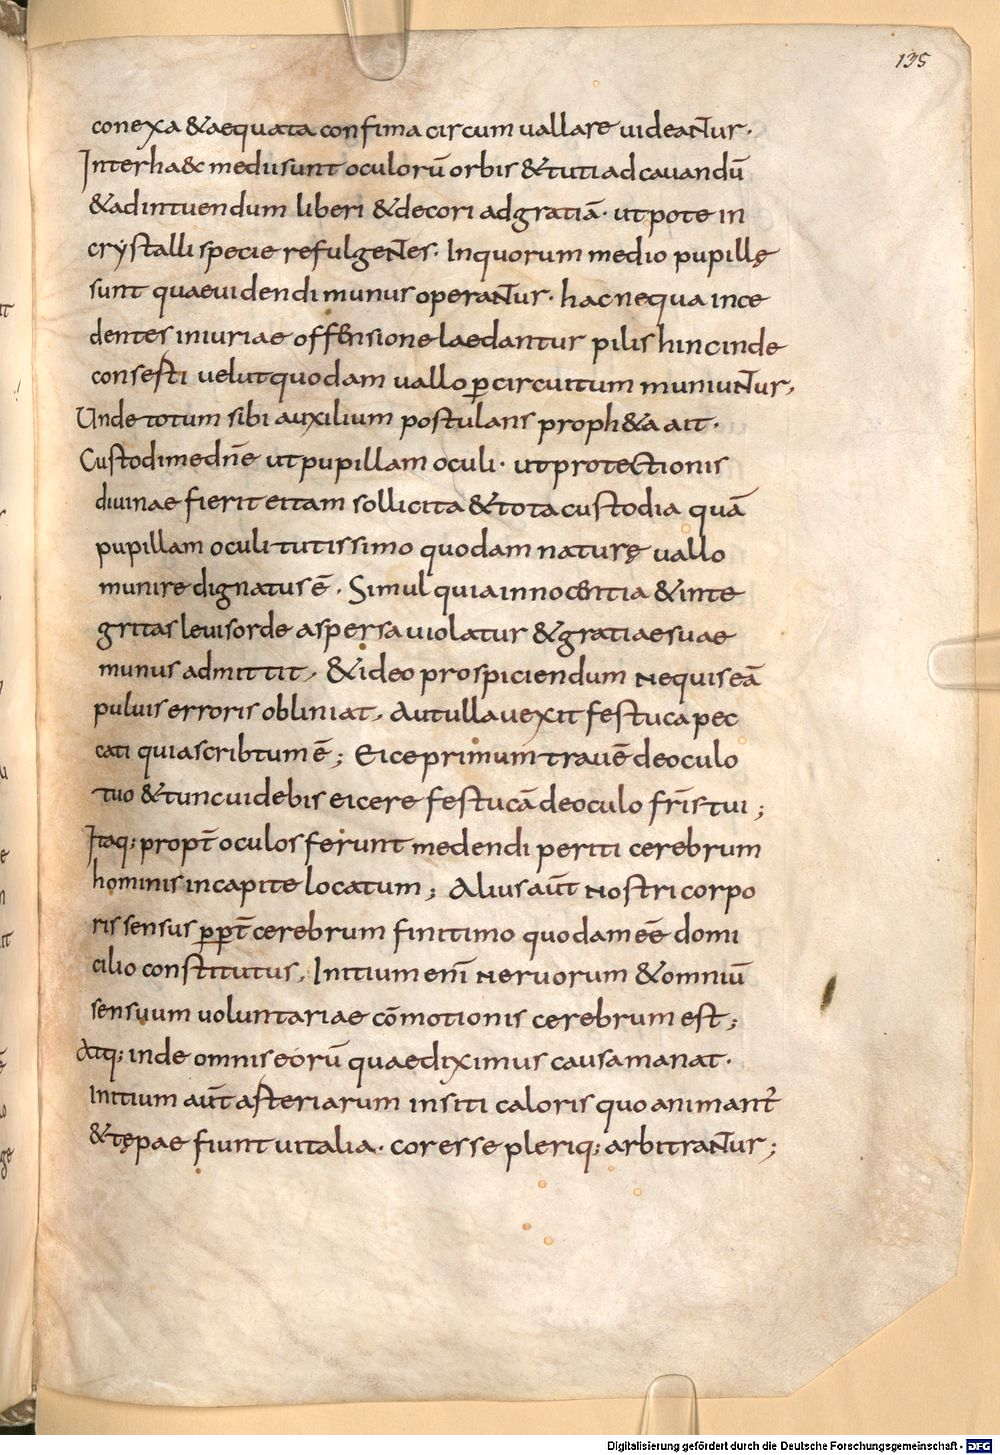 135
conexa & aequata confima circum uallare uideantur.
Inter ha&c medii sunt oculorū orbis & tuti ad cauandū
& ad intuendum liberi & decori ad gratiā. utpote in
crystalli specie refulgentes. In quorum medio pupillę
sunt quae uidendi munus operantur. hac nequa ince
dentes iniuriae offensione laedantur pilis hinc inde
consesti uelut quodam uallo ꝑ circuitum muniuntur,
Unde totum sibi auxilium postulans proph&a ait.
Custodi me dn̄e ut pupillam oculi. ut protectionis
diuinae fierit ei tam sollicita & tota custodia quā
pupillam oculi tutissimo quodam naturę uallo
munire dignatus ē. Simul quia innocentia & inte
gritas leui sorde aspersa uiolatur & gratiae suae
munus admittit, & ideo prospiciendum ne quis eā
puluis erroris obliniat, aut ulla uexit festuca pec
cati quia scribtum ē; Eice primum trauē de oculo
tuo & tunc uidebis eicere festucā de oculo fr̄is tui;
Itaq; propt̄ oculos ferunt medendi periti cerebrum
hominis in capite locatum; Alius aūt nostri corpo
ris sensus ꝓpt̄ cerebrum finitimo quodam eē domi
cilio constitutus, Initium enī neruorum & omniū
sensuum uoluntariae cōmotionis cerebrum est;
Atq; inde omnis eorū quae diximus causa manat.
Initium aūt asteriarum insiti caloris quo animant̄
& tępae fiunt uitalia. cor esse pleriq; arbitrantur;
Digitalisierung gefördert durch die Deutsche Forschungsgemeinschaft - DFG